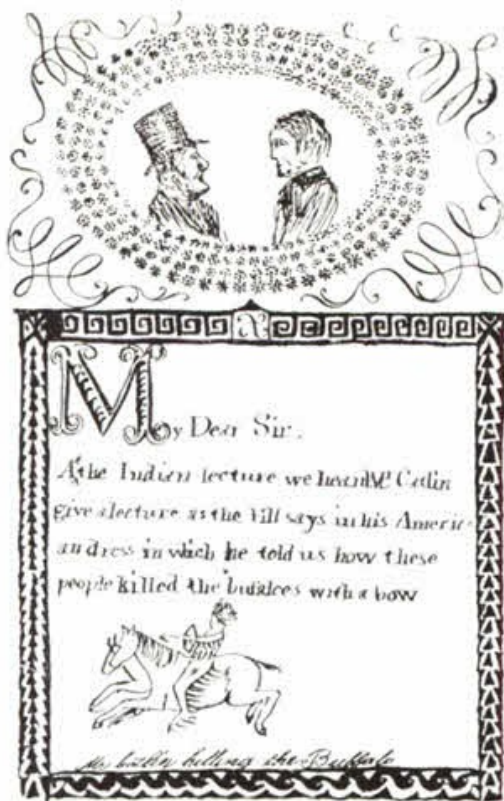 My Dear Sir.
At the Indian lecture we heard Mr Catlin
give a lecture as the bill says in his Americ-
an dress in which he told us how these
people killed the bufaloes with a bow
Mr Catlin killing the Buffalo